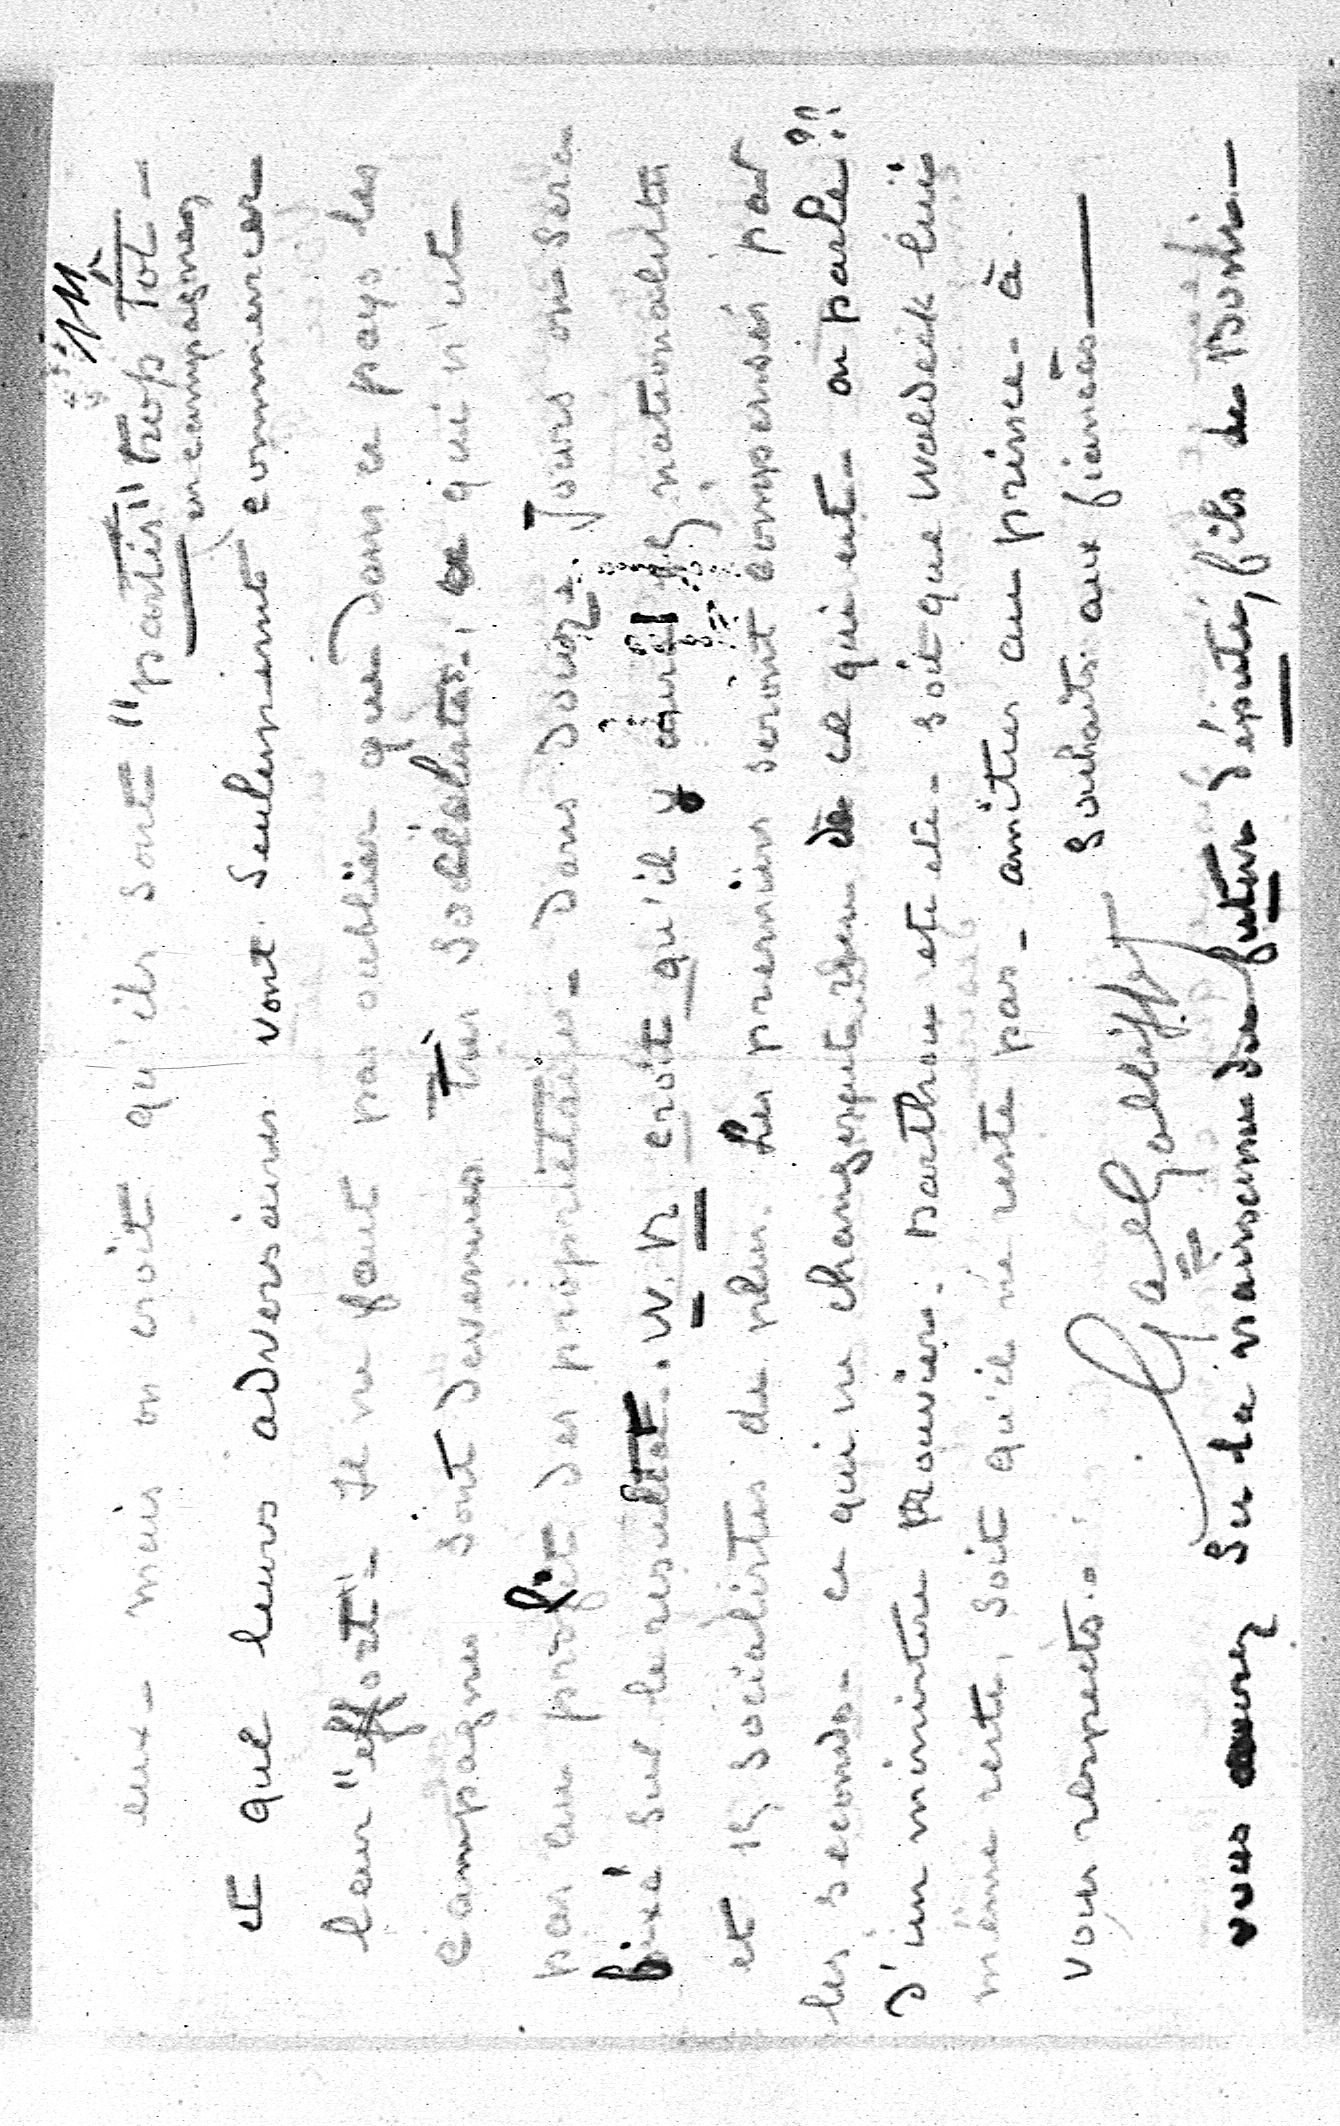 eux - mais on croit qu'ils sont "partis" trop tôt -
en campagne,
et que leurs adversaires vont seulement commencer
leur "effort" - Il ne faut pas oublier que dans ce pays les
campagnes sont devenues très socialistes, ce qui n'est
pas au profit des propriétaires - dans douze jours on sera
fixé sur le résultat. W. R croit qu'il y aura nationalistes
et 15 socialistes de plus. Les premiers seront compensés par
les seconds - ce qui ne changera de ce qui est - on parle ??
d'un ministère Rouvier. etc etc - soit que Waldeck lui
même reste, soit qu'il ne reste pas - amitiés au prince - à
vous respects.. souhaits aux fiancés
Gal Galliffet
vous aurez su la naissance du futur député, fils de Boni -